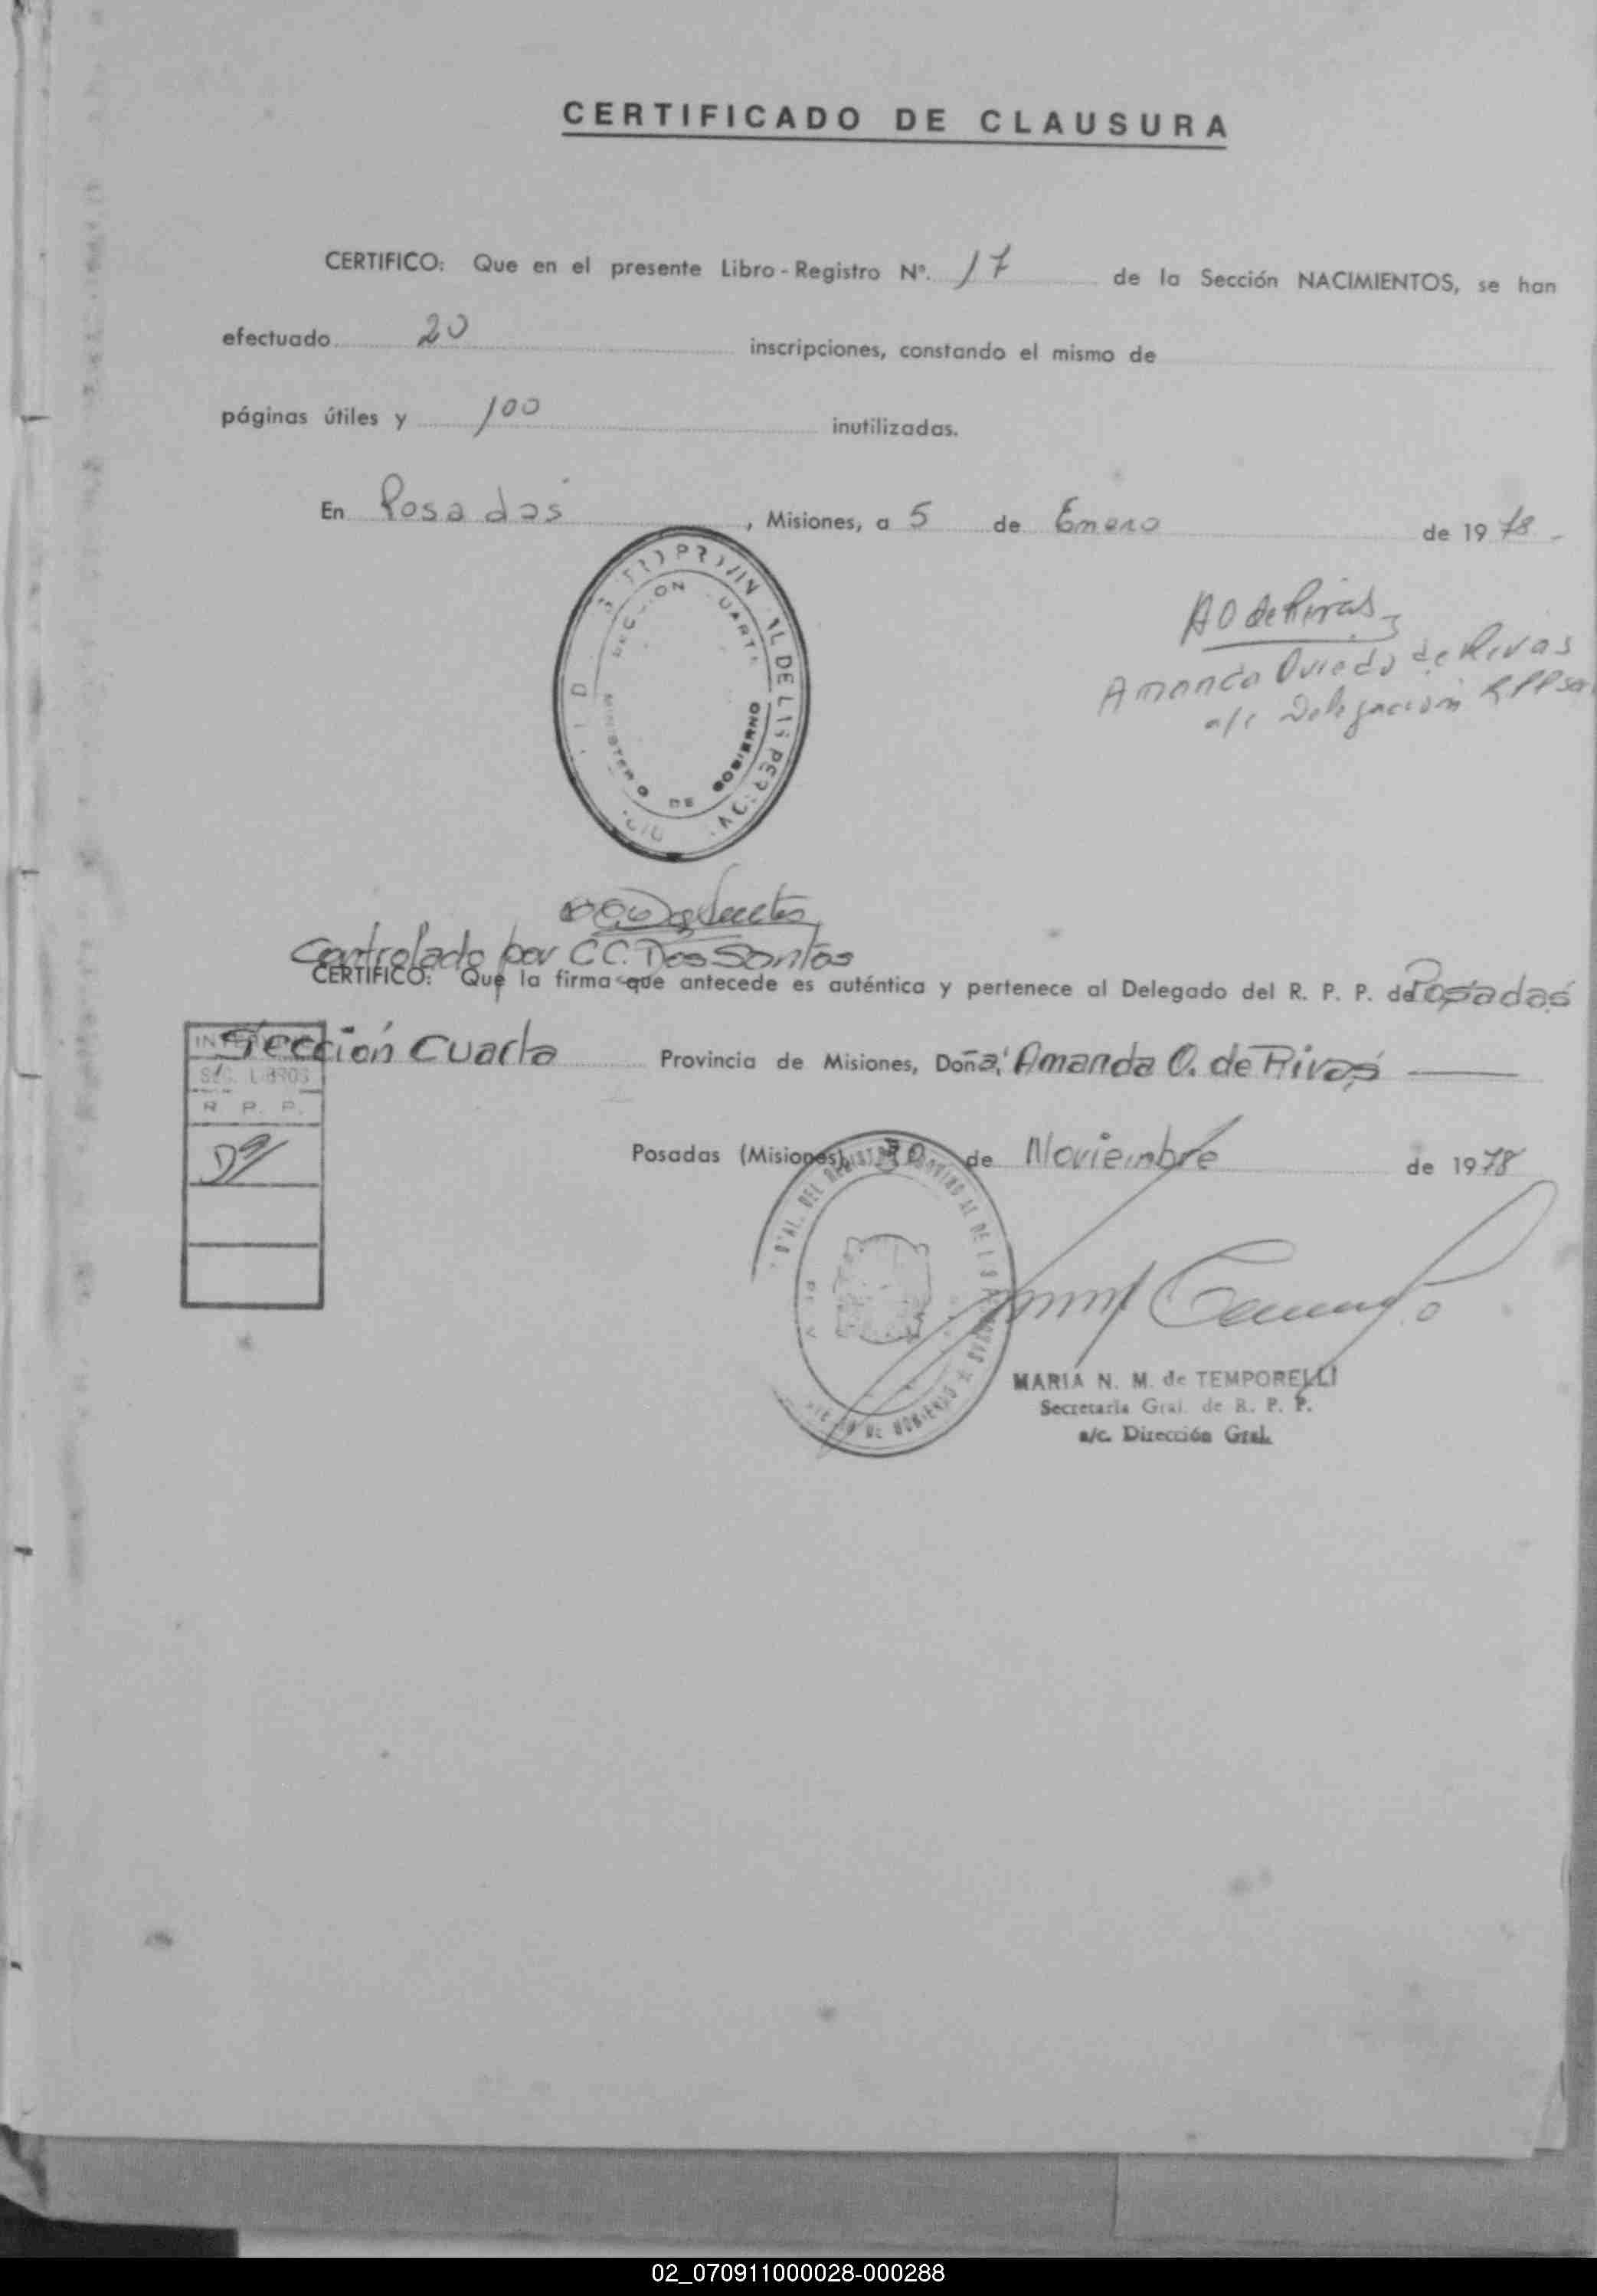 CERTIFICADO DE CLAUSURA
CERTIFICO: Que en el presente Libro - Registro Nº. 17 de la Sección NACIMIENTOS, se han
efectuado 20 inscripciones, constando el mismo de
páginas útiles y 100 inutilizadas.
En Posadas, Misiones, a 5 de Enero de 1978.
AO de Rivas
Amanda Oviedo de Rivas
a/c Delegación
MINISTERO DE GOBIERNO
Controlado por C.C. Dos Santos
CERTIFICO: Que la firma que antecede es auténtica y pertenece al Delegado del R. P. P. de Posadas
Sección Cuarta Provincia de Misiones, Doña: Amanda O. de Rivas
SEC. LIBROS
R. P. P.
Posadas (Misiones), 30 de Noviembre de 1978
MARIA N. M. de TEMPORELLI
Secretaria Gral. de R. P. P.
a/c. Dirección Gral.
02_070911000028-000288